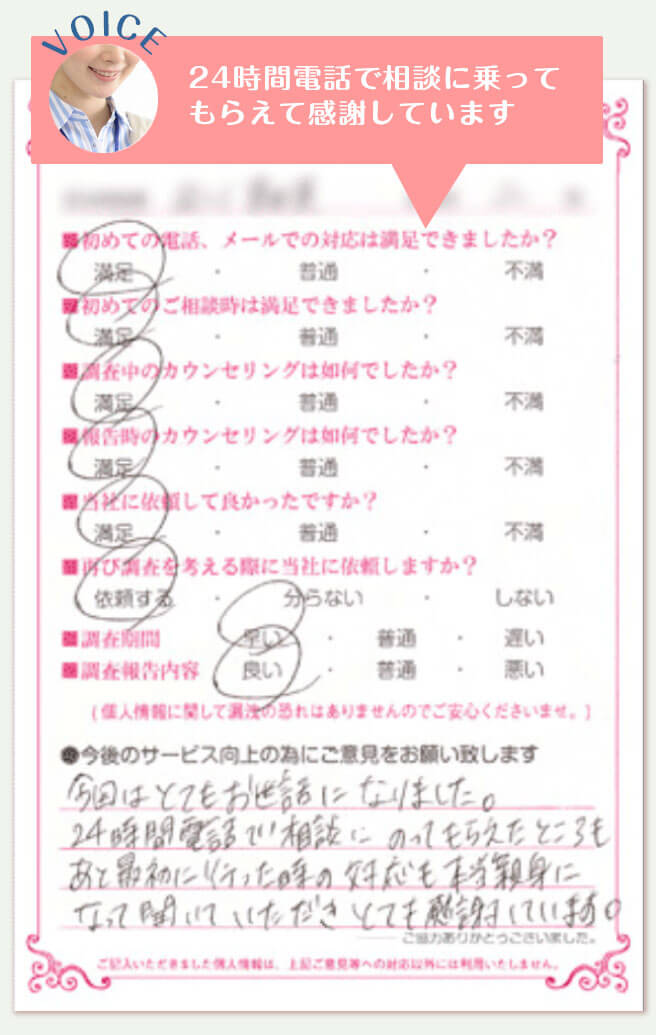 VOICE
24時間電話で相談に乗って
もらえて感謝しています
初めての電話、メールでの対応は満足できましたか？
満足 ・ 普通 ・ 不満
初めてのご相談時は満足できましたか？
満足 ・ 普通 ・ 不満
調査中のカウンセリングは如何でしたか？
満足 ・ 普通 ・ 不満
報告時のカウンセリングは如何でしたか？
満足 ・ 普通 ・ 不満
当社に依頼して良かったですか？
満足 ・ 普通 ・ 不満
再び調査を考える際に当社に依頼しますか？
依頼する ・ 分らない ・ しない
調査期間 早い ・ 普通 ・ 遅い
調査報告内容 良い ・ 普通 ・ 悪い
(個人情報に関して漏洩の恐れはありませんのでご安心くださいませ。)
●今後のサービス向上の為にご意見をお願い致します
今回はとてもお世話になりました。
24時間電話で相談にのってもらえたところも
あと最初に行った時の対応も本当親身に
なって聞いていただきとても感謝しています。
ご協力ありがとうございました。
ご記入いただきました個人情報は、上記ご意見等への対応以外には利用いたしません。